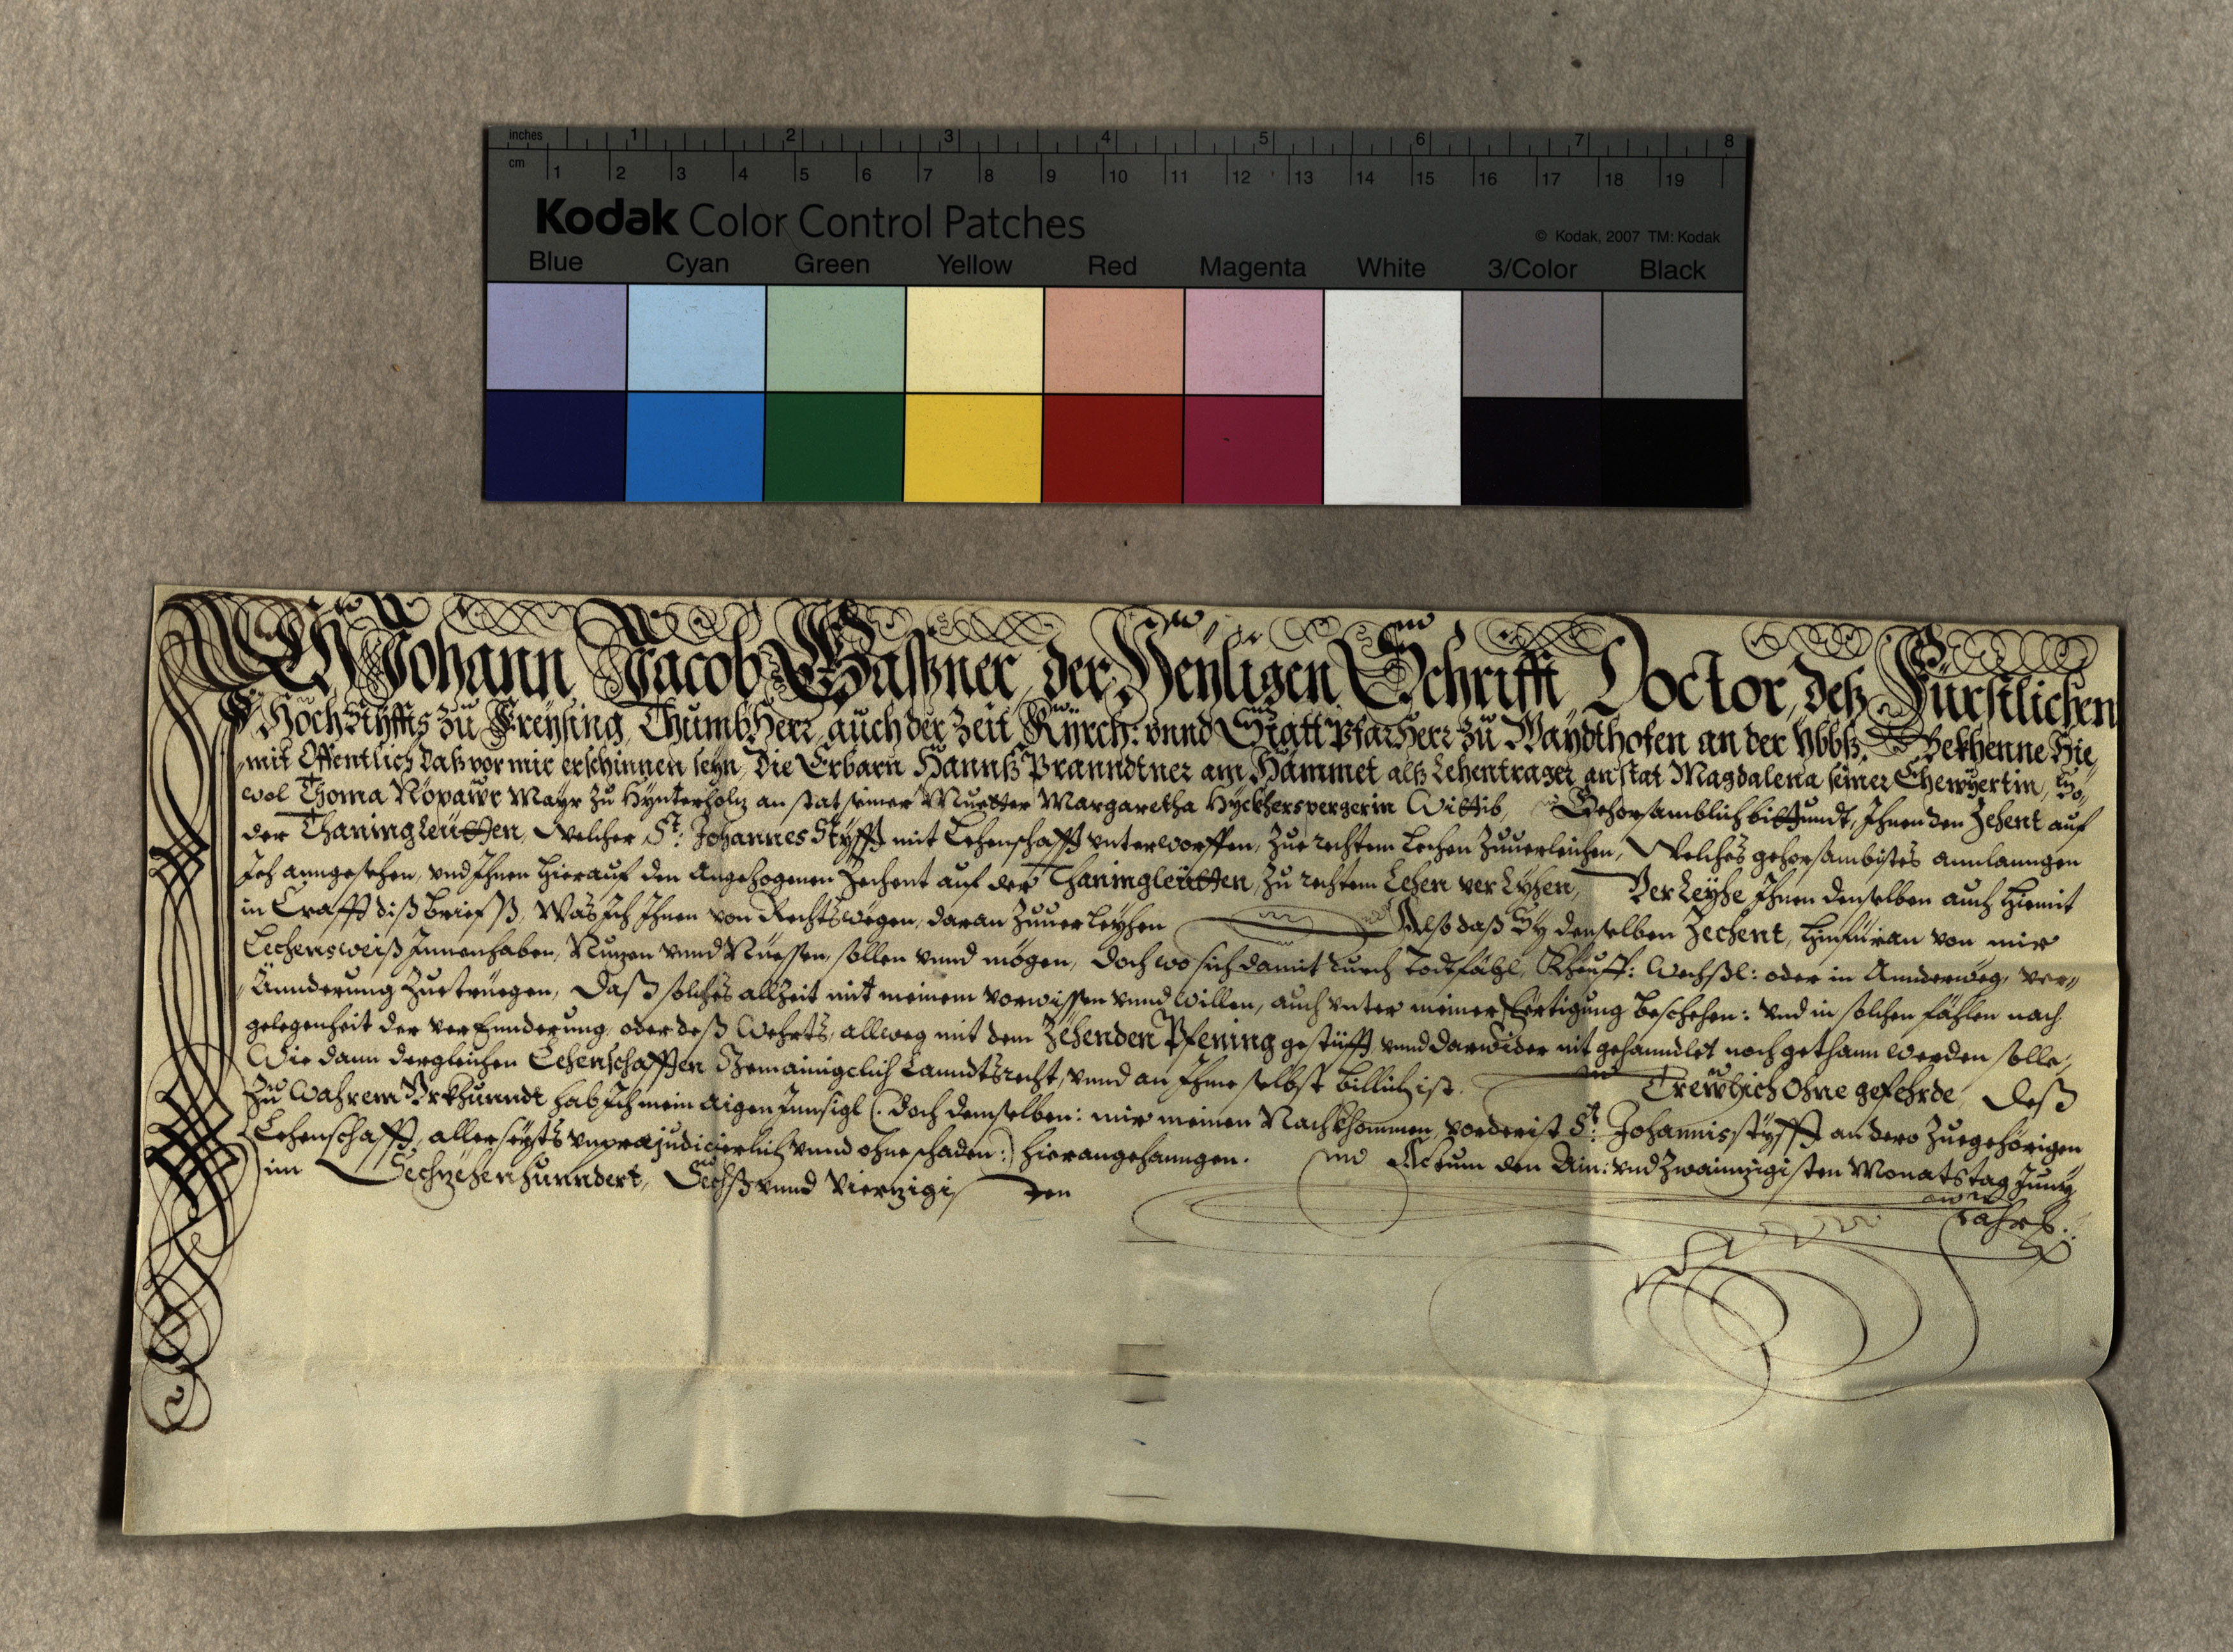 inches 1 2 3 4 5 6 7 8
cm 1 2 3 4 5 6 7 8 9 10 11 12 13 14 15 16 17 18 19
Kodak Color Control Patches
© Kodak, 2007 TM: Kodak
Blue Cyan Green Yellow Red Magenta White 3/Color Black
Ich Johann Jacob Gaßner, der Heyligen Schrifft Doctor, deß Fürstlichen
HochStyffts zu Freysing ThumbHerr, auch der Zeit Kyrch: vnnd Statt PfarHerr zu Waydthofen an der Ybbß. Bekhenne Hie,
mit Offentlich daß vor mir erschinnen seyn, Die Erbarn Hannß Pranndtner am Hammet alß Lehentrager an stat Magdalena seiner Ehewyertin, So,
wol Thoma Nöpawr Mayr zu Hynterholz an stat seiner Muetter Margaretha Hyckherspergerin Wittib, Gehorsamblich bittundt, Ihnen den Zehent auf
der Thaningleütten, Welcher St. Johannes Styfft mit Lehenschafft vnterworffen, Zue rechtem Lechen Zuuerleichen, Welches gehorsambistes annlanngen
Ich anngesehen, vnd Ihnen hierauf den Angezogenen Zechent auf der Thaningleütten, Zu rechtem Lehen verlyhen, Verleyhe Ihnen denselben auch hiemit
in Crafft diß briefß, Was Ich Ihnen von Rechtswegen, daran Zuuerleyhen Also daß Sy denselben Zechent, hinfüran von mir
Lechensweiß Innenhaben, Nuzen vnnd Nüessen, sollen vnnd mögen, doch wo sich damit durch Todtfähl, Khauff: Wechßl: oder in Annderweg, ver,
Ännderung Zuetrüegen, Daß solches allzeit mit meinem vorwissen vnnd willen, auch vnter meiner Fertigung beschehen: vnd in solchen fählen nach
gelegenheit der verEnnderung, oder deß Wehrts, allweg mit dem Zehenden Pfening gestüfft vnnd darwider nit gehanndlet noch gethann werden solle,
Wie dann dergleichen Lehenschafften Gemainigclich Lanndtsrecht, vnnd an Ihme selbst billich ist. Trewlich ohne gefehrde, Deß
Zu wahrem Vrkhunndt hab Ich mein aigen Innsigl (: doch demselben: mir meinen Nachkhommen, vorderist St. Johannis styfft an dero Zuegehörigen
Lehenschafft, allerseyts vnpraejudicierlich vnnd ohne schaden:) hierangehanngen. Actum den Ain: vnd Zwainzigisten Monatstag Juny
im Sechzehenhunndert, Sechß vnnd Vierzigisten
Jahrs.